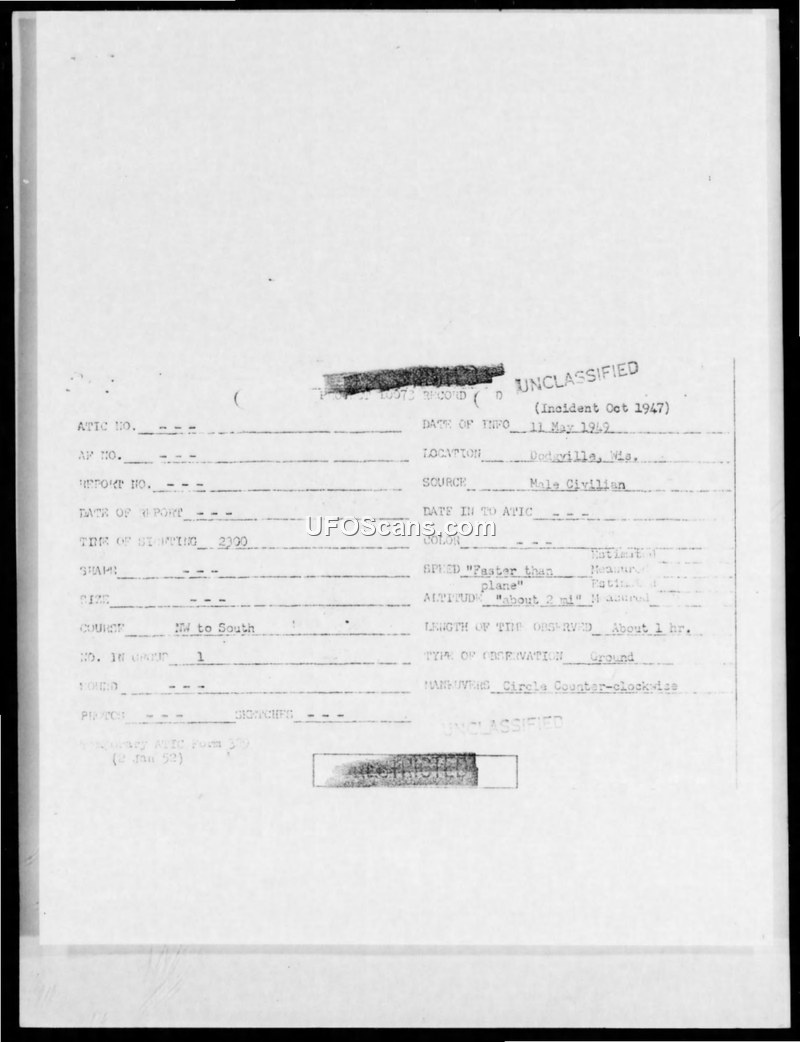 UNCLASSIFIED
PROJECT 10073 RECORD
(Incident Oct 1947)
ATIC NO. - - -
DATE OF INFO 11 May 1949
AF NO. - - -
LOCATION Dodgville, Wis.
REPORT NO. - - -
SOURCE Male Civilian
DATE OF REPORT - - -
DATE IN TO ATIC - - -
UFOScans.com
TIME OF SIGHTING 2300
COLOR - - -
SHAPE - - -
SPEED "Faster than plane" Estimated Measured
SIZE - - -
ALTITUDE "about 2 mi" Estimated Measured
COURSE NW to South
LENGTH OF TIME OBSERVED About 1 hr.
NO. IN GROUP 1
TYPE OF OBSERVATION Ground
SOUND - - -
MANEUVERS Circle Counter-clockwise
PHOTOS - - - SKETCHES - - -
UNCLASSIFIED
Temporary ATIC Form 329
(2 Jan 52)
RESTRICTED